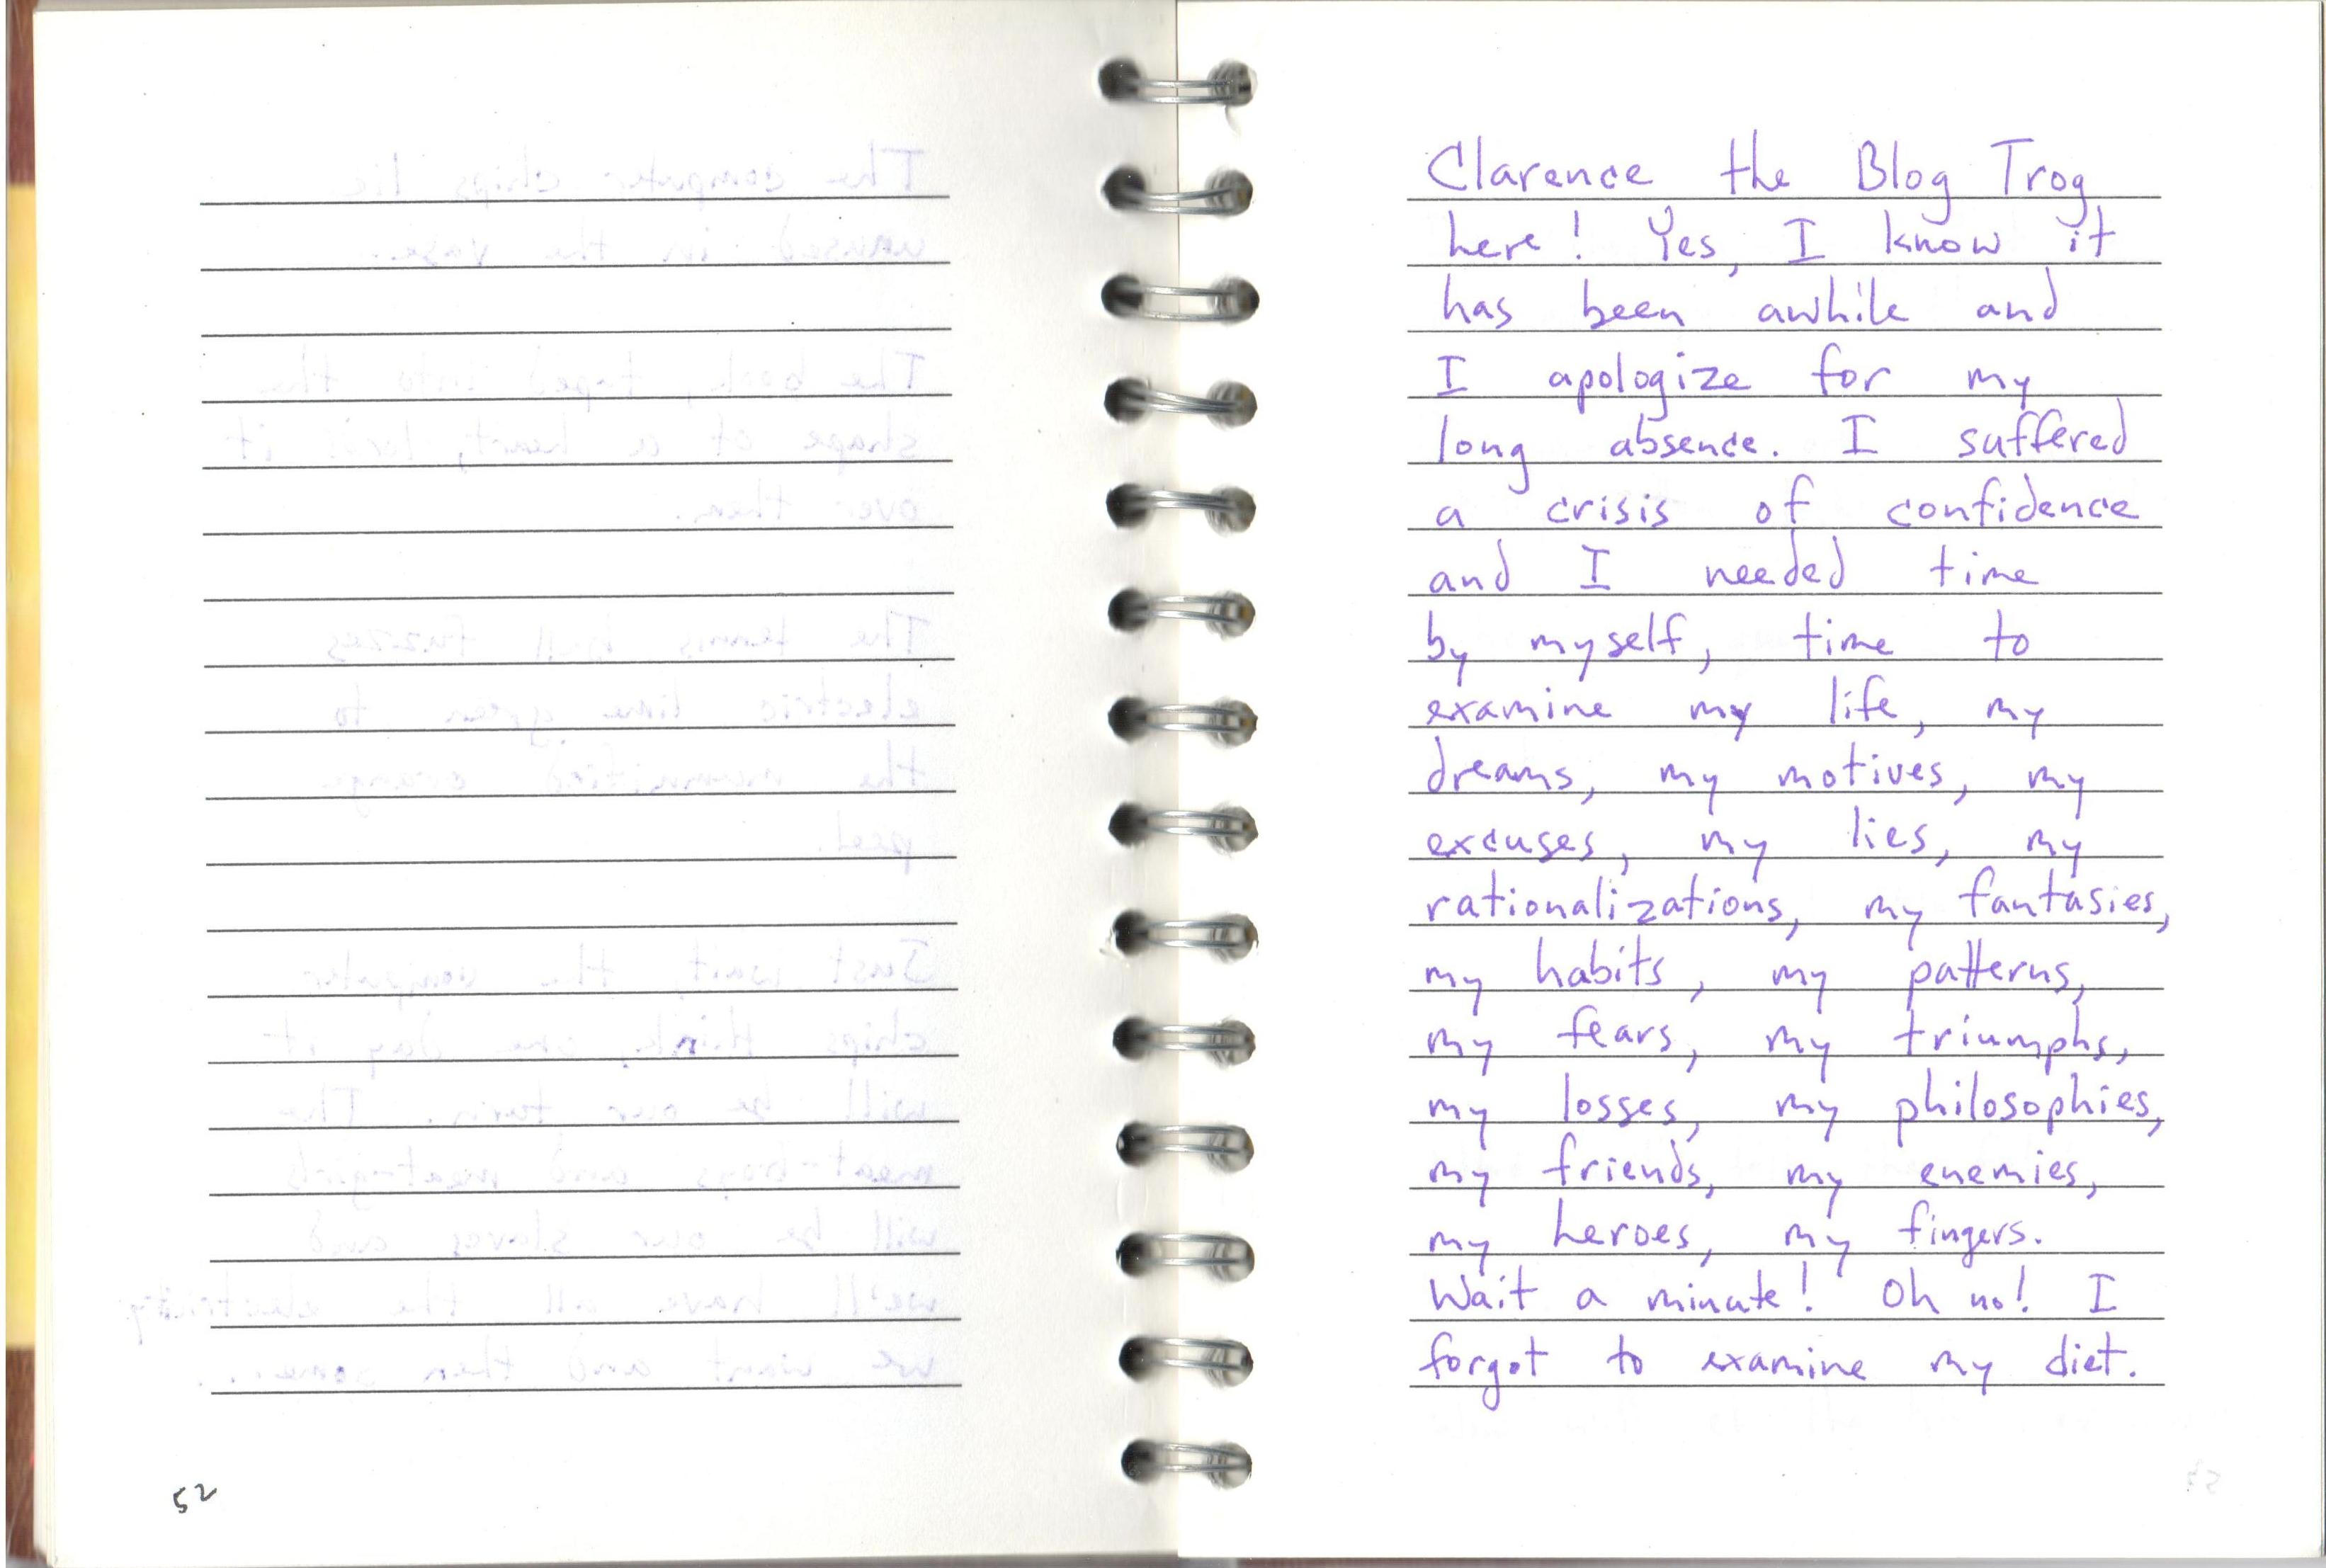 52
Clarence the Blog Trog
here! Yes, I know it
has been awhile and
I apologize for my
long absence. I suffered
a crisis of confidence
and I needed time
by myself, time to
examine my life, my
dreams, my motives, my
excuses, my lies, my
rationalizations, my fantasies,
my habits, my patterns,
my fears, my triumphs,
my losses, my philosophies,
my friends, my enemies,
my heroes, my fingers.
Wait a minute! Oh no! I
forgot to examine my diet.